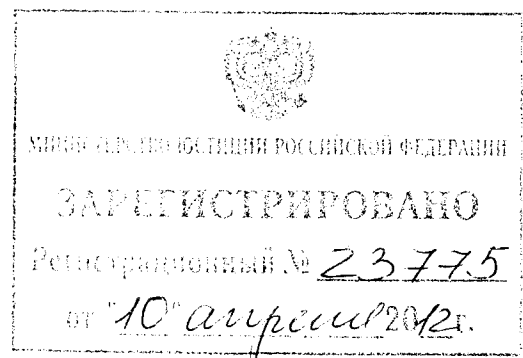 МИНИСТЕРСТВО ЮСТИЦИИ РОССИЙСКОЙ ФЕДЕРАЦИИ
ЗАРЕГИСТРИРОВАНО
Регистрационный № 23775
от "10" апреля 2012г.